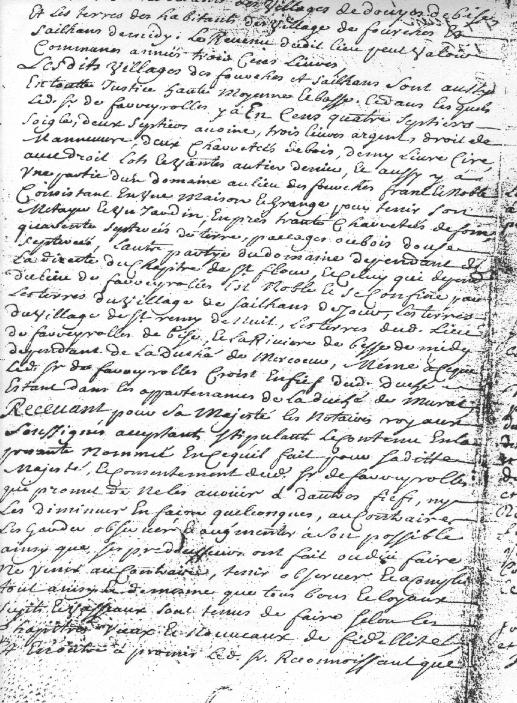 Et les terres des habitants du village de fourches de
Sailhans de midy; Le Revenu dudit lieu peut Valoir
Communes années trois Cens Livres,
Les dits Villages des fouches et Sailhans sont aussy
En toutte Justice haute Moyenne et basse. Et dans lesquels
Led. Sr. de faveyrolles y a En Cens quatre Septiers
Soigle, deux Septiers avoine, trois livres argent, droit de
Manneuvre, deux Chavretels de bois, demy Livre Cire
au droit Lots et Vantes au tier denier, Et aussy y a
Une partie d'un domaine au lieu des fouches franc et Noble
Consistant En Une Maison et Grange pour tenir Son
Metayer et Un Jardin, En prés trante Chavretels de foin
quarente Septerées de terre, paccages ou bois douse
Septerées, L'autre partye du domaine dependant de
La directe du Chapitre de St. flour, Et Celuy qui depend
du lieu de faveyrolles Est Noble et Se Confine par
Les terres du Village de Sailhans de Jour, Les terres
du Village de St. remy de Nuit, Les terres dud. Lieu
de faveyrolles de bise, Et La Riviere de besse de midy
dependant de La Duché de Mercoeur, Même Ce que
Led. Sr. de faveyrolles Croist En fief dud. duché
Estant dans les appartenances de La duché de Murat
Recevant pour Sa Majesté les Notaires royaux
Soussignés acceptants Stipulants Le Contenu En la
presante Nommée En Ce qu'il fait pour Sa ditte
Majesté, Et Consentement dud. Sr. de faveyrolles
que promet de Ne les avouer à d'autres fiefs, ny
Les diminuer En façon quelconques, au Contraire
Les Garder observer Et augmenter à Son possible
ainsy que Ses predecesseurs ont fait ou dû faire
Ne Venir au Contraire, tenir observer Et acomplir
tout ainsy de meme que tous bons Et loyaux
Sujets Et Vassaux Sont tenus de faire Selon les
Chapitres Vieux Et Nouveaux de fidellité,
Et En outre à promis Led. Sr. Reconnoissant que